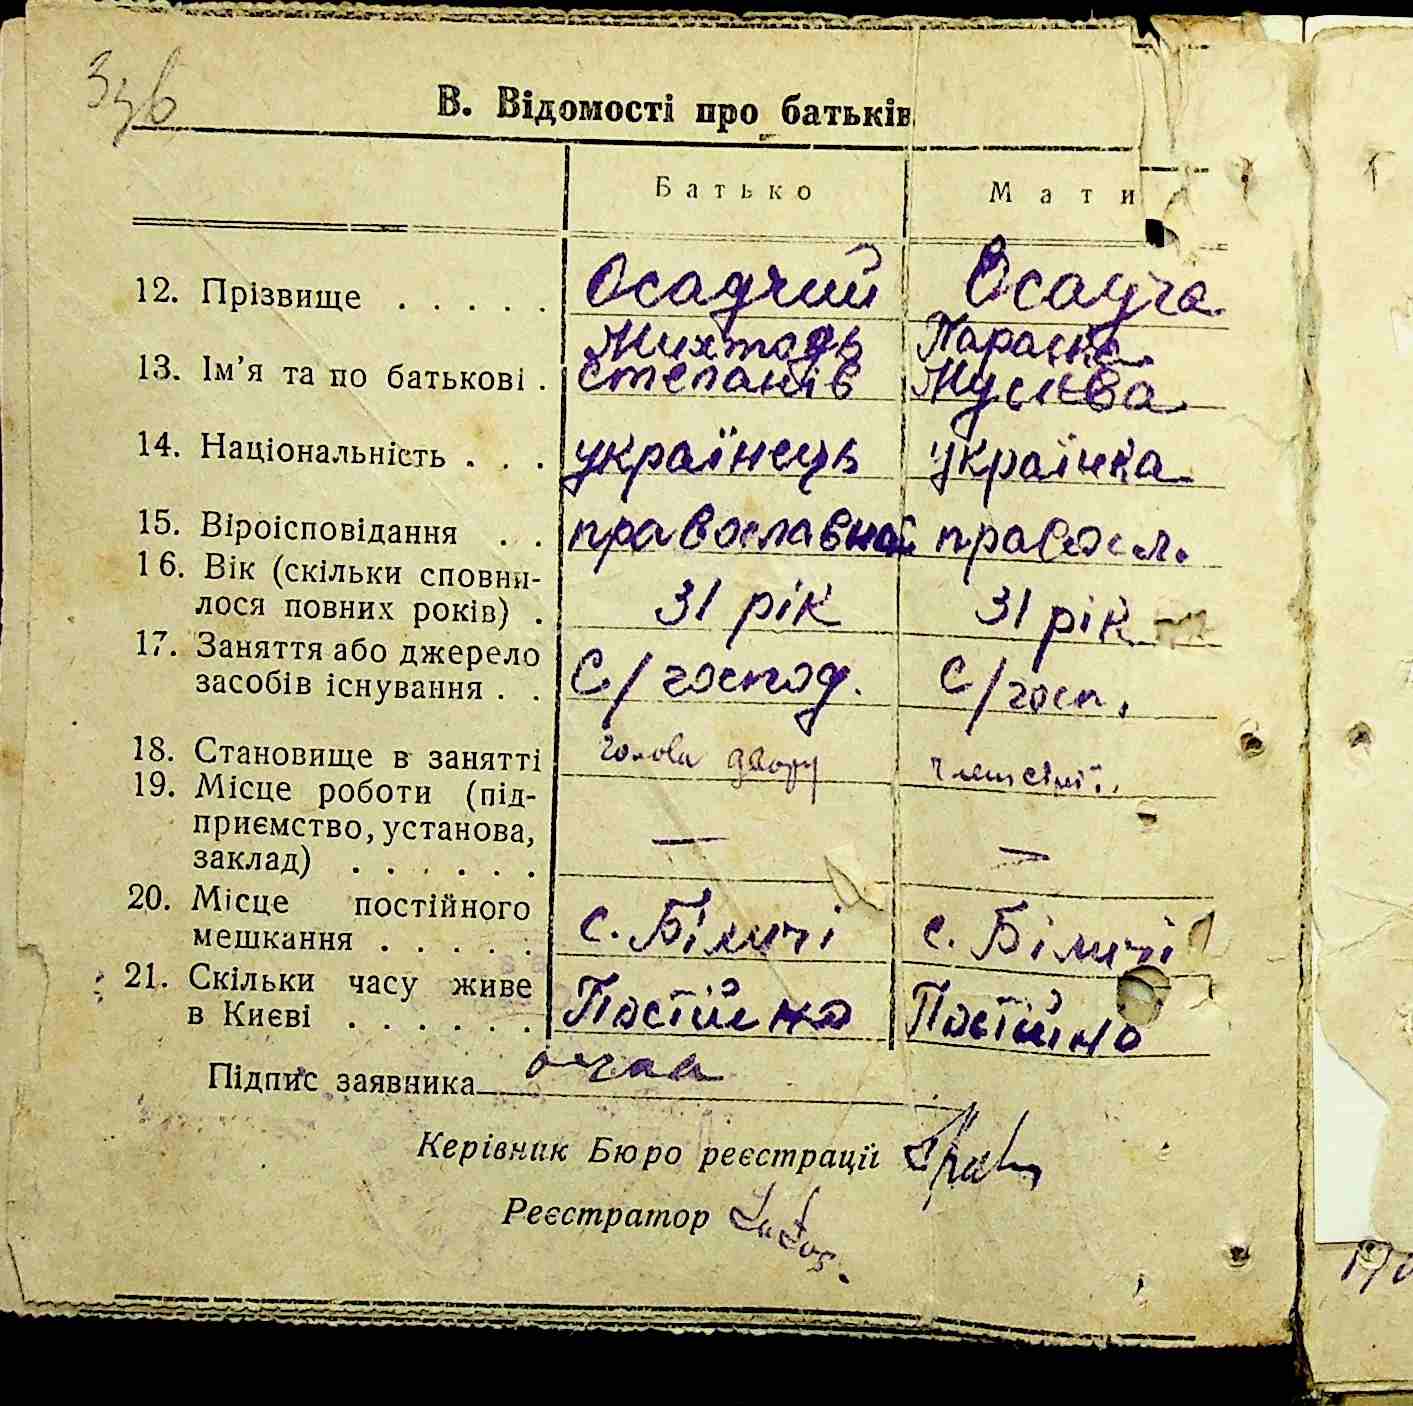 В. Відомості про батьків
Батько Мати
12. Прізвище . . . . . Осадчий Осадча
Параска
13. Ім’я та по батькові . Степанів Мусіева
14. Національність . . . українець українка
15. Віроісповідання . . православної правосл.
16. Вік (скільки сповни-
лося повних років) . 31 рік 31 рік
17. Заняття або джерело
засобів існування . . С/господ. С/госп.
18. Становище в занятті голова двору член сімї.
19. Місце роботи (під-
приємство, установа,
заклад) . . . . . . — —
20. Місце постійного
мешкання . . . . . с. Біличі с. Біличі
21. Скільки часу живе
в Києві . . . . . . Постійно Постійно
Підпис заявника
Керівник Бюро реєстрації
Реєстратор